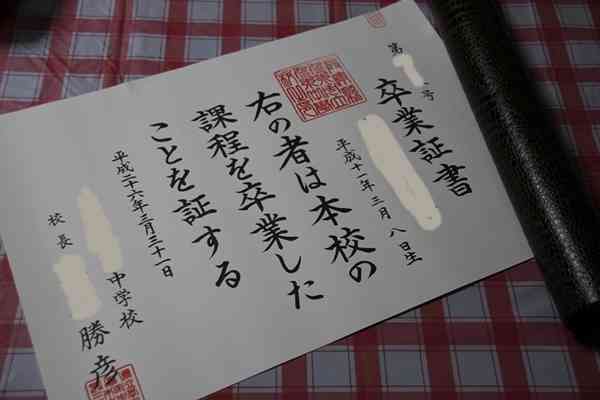 第号
卒業証書
平成十一年三月八日生
右の者は本校の
課程を卒業した
ことを証する
平成二十六年三月三十一日
中学校
校長 勝彦